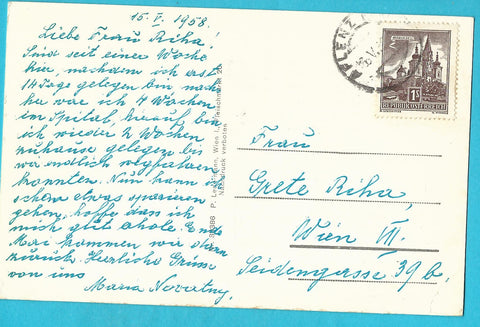 15. V. 1958.
Liebe Frau Riha!
Sind seit einer Woche
hier, nachdem ich erst
14 Tage gelegen bin nach
her war ich 4 Wochen
im Spital, drauf bin
ich wieder 2 Wochen
zuhause gelegen bis
wir endlich wegfahren
konnten. Nun kann ich
schon etwas spazieren
gehen, hoffe dass ich
mich gut erhole. Ende
Mai kommen wir
zurück. Herzliche Grüsse
von uns
Maria Novotny.
P. Ledermann, Wien I,
Nachdruck verboten
1S
REPUBLIK ÖSTERREICH
Frau
Grete Riha,
Wien VII.
Seidengasse 39 b,